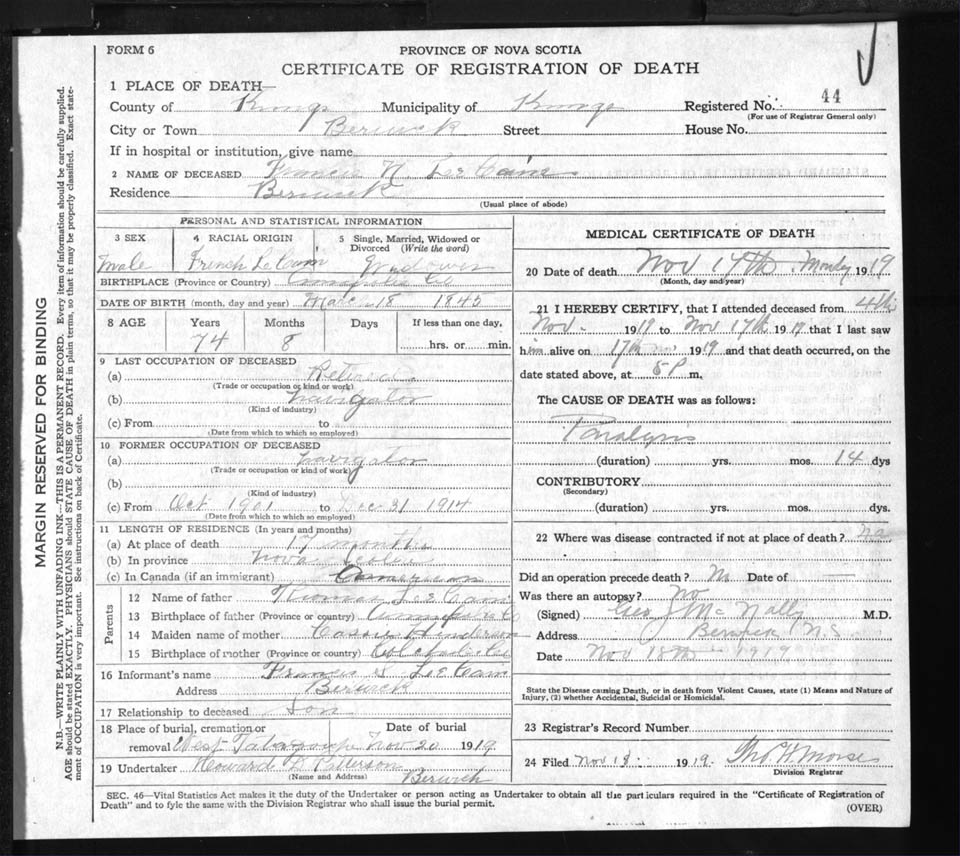 FORM 6
PROVINCE OF NOVA SCOTIA
CERTIFICATE OF REGISTRATION OF DEATH
1 PLACE OF DEATH—
County of Kings Municipality of Kings Registered No. 44
(For use of Registrar General only)
City or Town Berwick Street House No.
If in hospital or institution, give name
2 NAME OF DECEASED Francis N. LeCain
Residence Berwick
(Usual place of abode)
PERSONAL AND STATISTICAL INFORMATION
3 SEX 4 RACIAL ORIGIN 5 Single, Married, Widowed or Divorced (Write the word)
male French Widower
BIRTHPLACE (Province or Country) Annapolis Co
DATE OF BIRTH (month, day and year) March 18 1845
8 AGE Years Months Days If less than one day,
74 8 hrs. or min.
9 LAST OCCUPATION OF DECEASED
(a) Retired
(Trade or occupation or kind or work)
(b) navigator
(Kind of industry)
(c) From to
(Date from which to which so employed)
10 FORMER OCCUPATION OF DECEASED
(a) navigator
(Trade or occupation or kind of work)
(b)
(Kind of industry)
(c) From Oct 1901 to Dec 31 1914
(Date from which to which so employed)
11 LENGTH OF RESIDENCE (In years and months)
(a) At place of death 17 months
(b) In province Nova Scotia
(c) In Canada (if an immigrant)
Parents
12 Name of father Thomas LeCain
13 Birthplace of father (Province or country) Annapolis Co
14 Maiden name of mother Henderson
15 Birthplace of mother (Province or Country) Colchester Co
16 Informant's name Francis S. LeCain
Address Berwick
17 Relationship to deceased Son
18 Place of burial, cremation or removal Date of burial
West Nov 20 1919
19 Undertaker Howard Patterson
(Name and Address) Berwick
MEDICAL CERTIFICATE OF DEATH
20 Date of death Nov 17th Monday 1919
(Month, day and year)
21 I HEREBY CERTIFY, that I attended deceased from 4th
Nov. 1919 to Nov 17th 1919 that I last saw
him alive on 17th Nov 1919 and that death occurred, on the
date stated above, at 8 P m.
The CAUSE OF DEATH was as follows:
Paralysis
(duration) yrs. mos. 14 dys
CONTRIBUTORY
(Secondary)
(duration) yrs. mos. dys.
22 Where was disease contracted if not at place of death?
Did an operation precede death? No Date of —
Was there an autopsy? No
(Signed) Geo J McNally M.D.
Address Berwick N.S
Date Nov 18th 1919
State the Disease causing Death, or in death from Violent Causes, state (1) Means and Nature of
Injury, (2) whether Accidental, Suicidal or Homicidal.
23 Registrar's Record Number
24 Filed Nov 18 1919. Tho. H Morse
Division Registrar
SEC. 46—Vital Statistics Act makes it the duty of the Undertaker or person acting as Undertaker to obtain all the particulars required in the "Certificate of Registration of
Death" and to fyle the same with the Division Registrar who shall issue the burial permit.
(OVER)
MARGIN RESERVED FOR BINDING
N.B.—WRITE PLAINLY WITH UNFADING INK—THIS IS A PERMANENT RECORD. Every item of information should be carefully supplied.
AGE should be stated EXACTLY. PHYSICIANS should STATE CAUSE OF DEATH in plain terms, so that it may be properly classified. Exact state-
ment of OCCUPATION is very important. See instructions on back of Certificate.